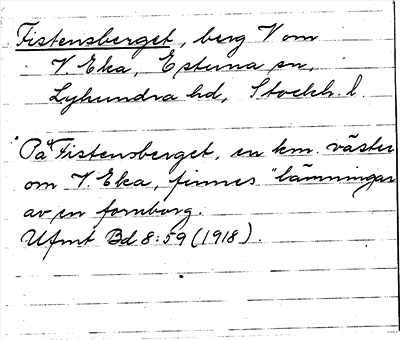 Fistensberget, berg V om
V. Eka, Estuna sn,
Lyhundra hd, Stockh. l.
"På Fistensberget, en km. väster
om V. Eka, finnes "lämningar
av en fornborg.
Ufmt Bd 8:59 (1918).